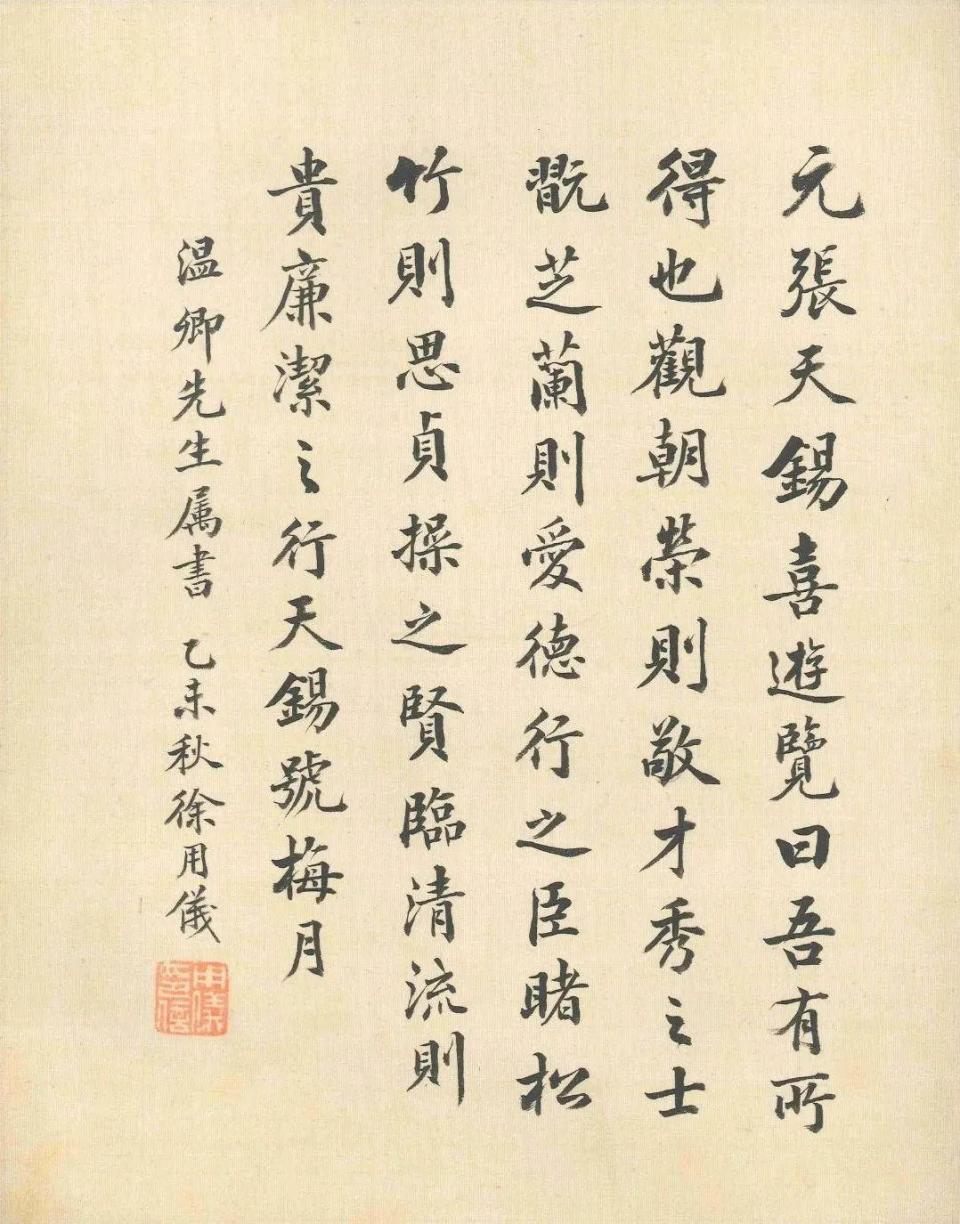 元張天錫喜遊覽曰吾有所
得也觀朝榮則敬才秀之士
翫芝蘭則愛德行之臣睹松
竹則思貞操之賢臨清流則
貴廉潔之行天錫號梅月
温卿先生属書 乙未秋徐用儀
用儀印信